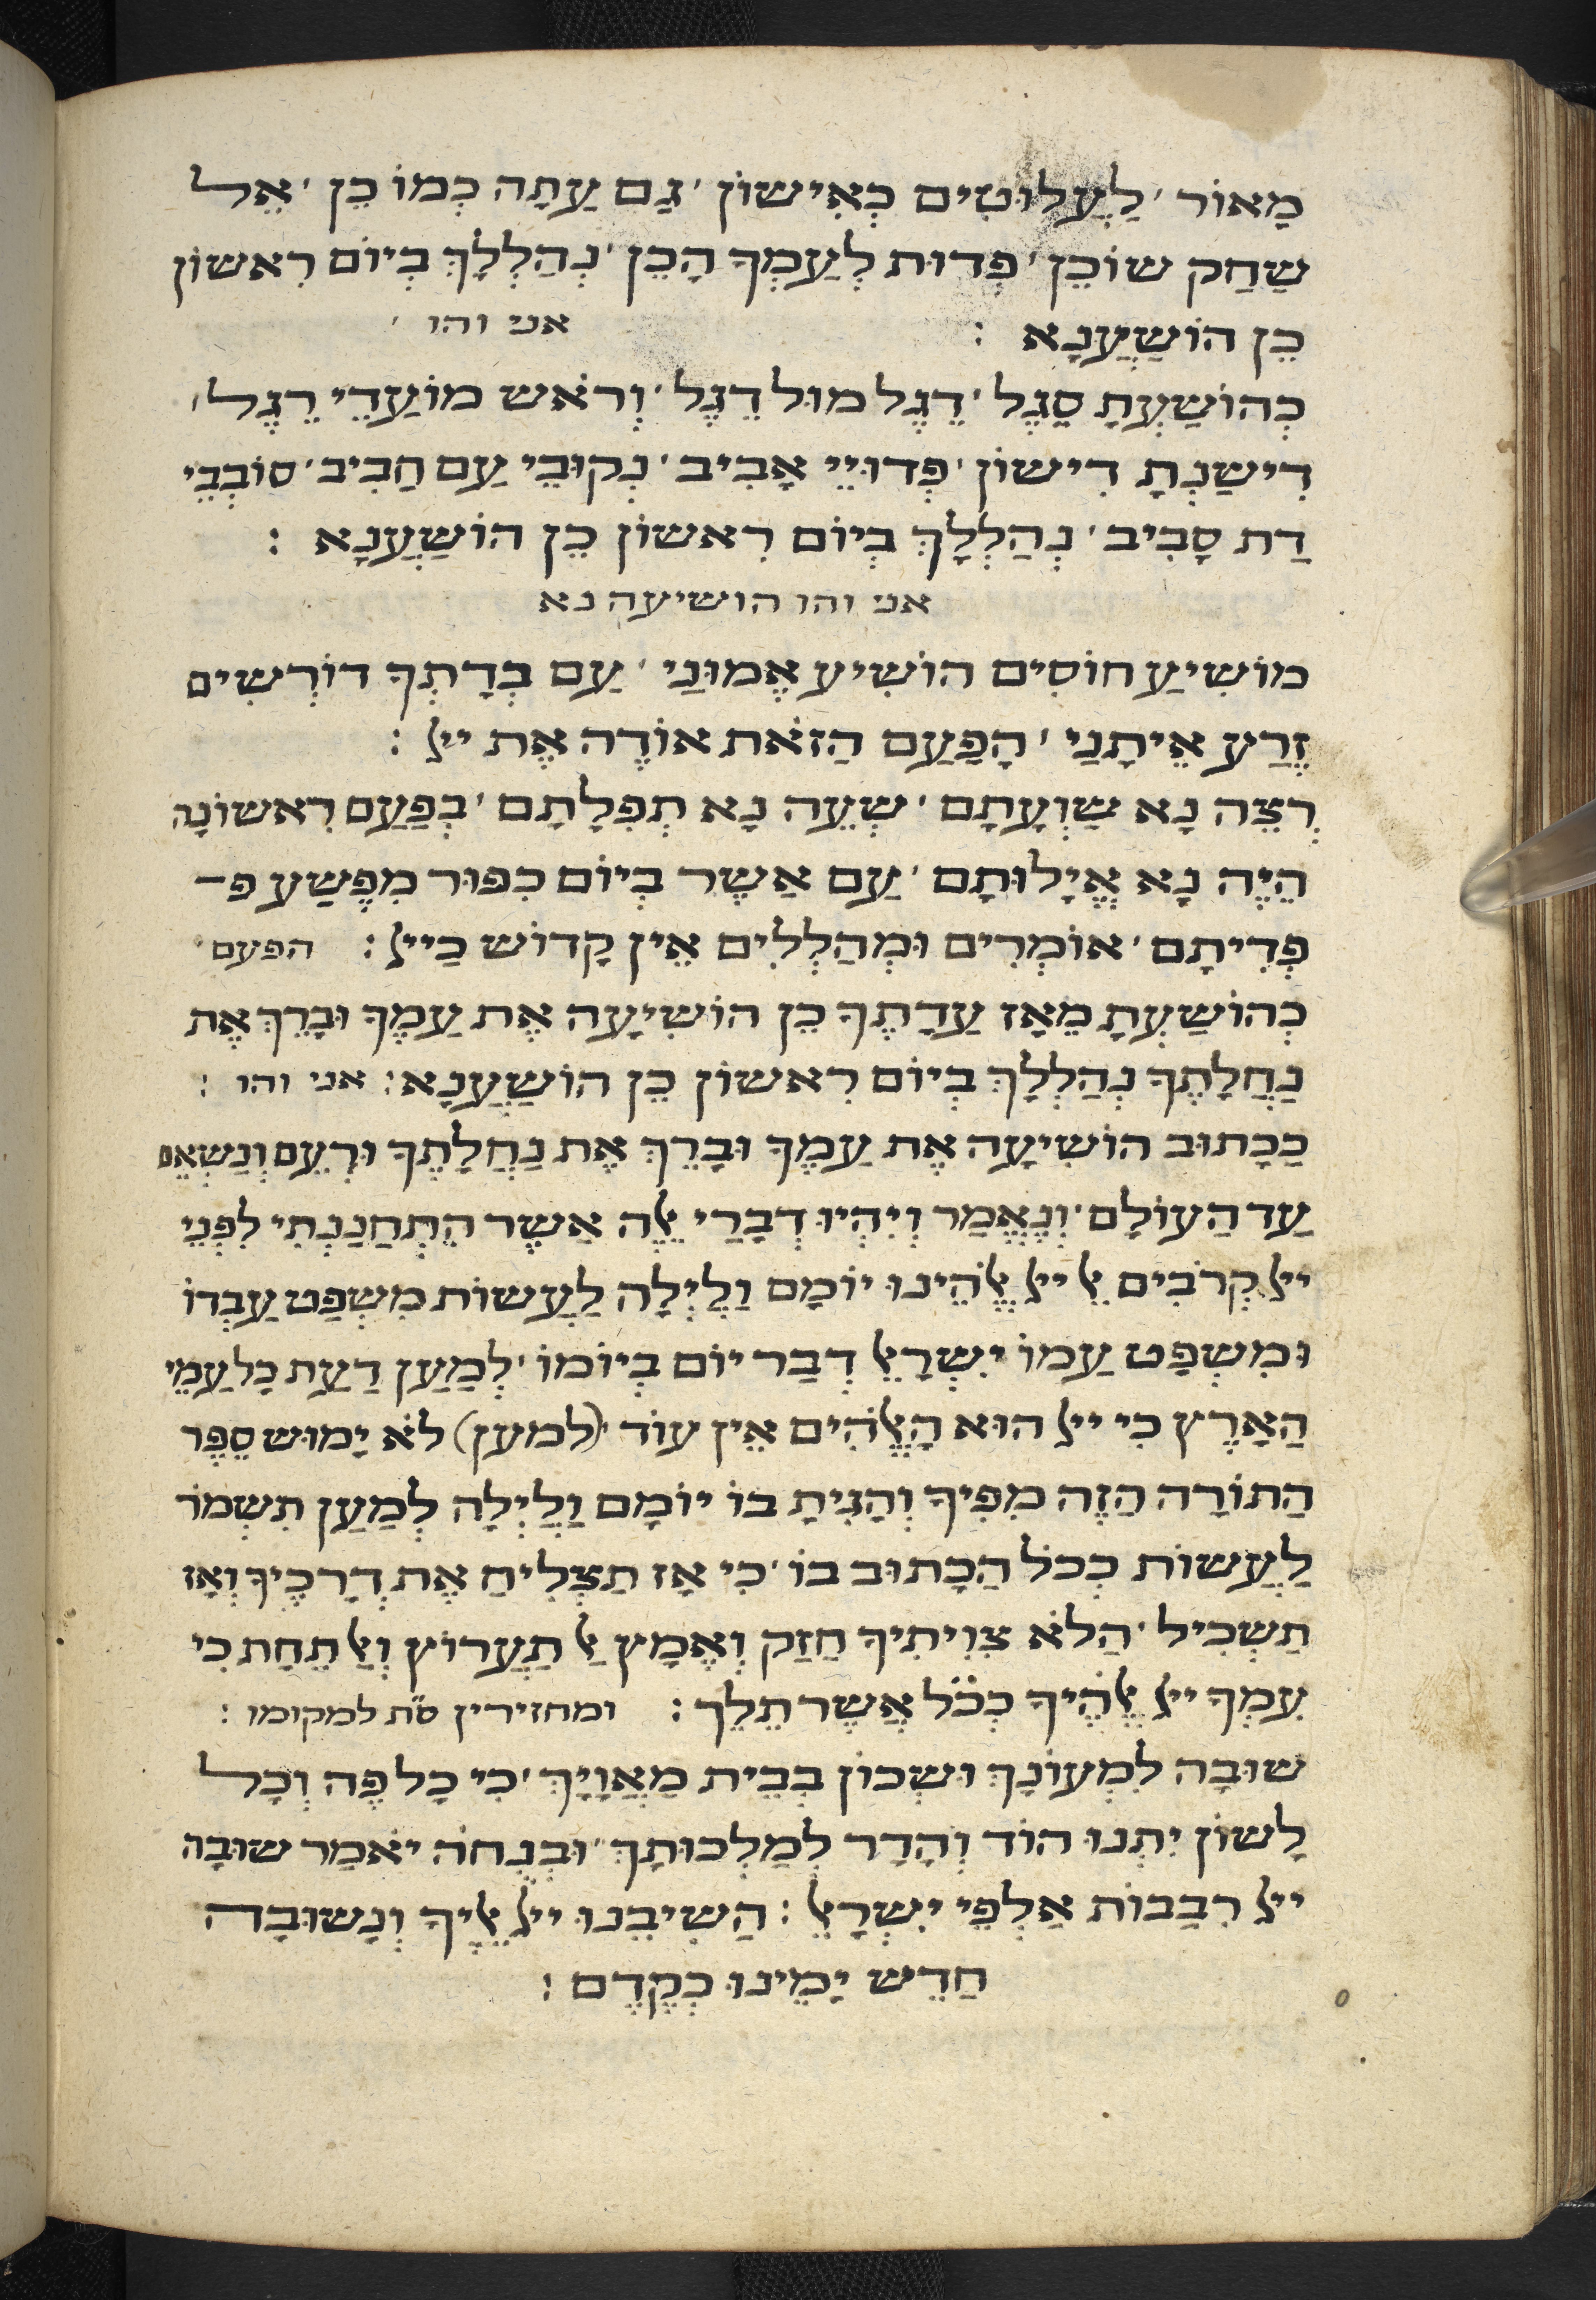 מָאוֹר ׳ לַעֲלוּטִים כְּאִישׁוֹן ׳ גַּם עַתָּה כְּמוֹ כֵן ׳ אֵל
שַׁחַק שׁוֹכֵן ׳ פְּדוּת לְעַמְּךָ הָכֵן ׳ נְהַלְלָךְ בְּיוֹם רִאשׁוֹן
כֵּן הוֹשַׁעֲנָא : אני והו ׳
כְּהוֹשַׁעְתָּ סֶגֶל ׳ דֶגֶל מוּל דֶגֶל ׳ וְרֹאשׁ מוֹעֲדֵי רֶגֶל ׳
דִּישַׁנְתָּ דִישׁוֹן ׳ פְּדוּיֵי אָבִיב ׳ נְקוּבֵי עַם חָבִיב ׳ סוֹבְבֵי
דַת סָבִיב ׳ נְהַלְלָךְ בְּיוֹם רִאשׁוֹן כֵּן הוֹשַׁעֲנָא :
אני והו הושיעה נא
מוֹשִׁיעַ חוֹסִים הוֹשִׁיעַ אֱמוּנַי ׳ עַם בְּדָתְךָ דוֹרְשִׁים
זֶרַע אֵיתָנַי ׳ הַפַּעַם הַזֹּאת אוֹדֶה אֶת ייל :
רְצֵה נָא שַׁוְעָתָם ׳ שְׁעֵה נָא תְפִלָּתָם ׳ בְּפַעַם רִאשׁוֹנָה
הֱיֵה נָא אֱיָלוּתָם ׳ עַם אֲשֶׁר בְּיוֹם כִּפּוּר מִפֶּשַׁע פ
פְּדִיתָם ׳ אוֹמְרִים וּמְהַלְלִים אֵין קָדוֹשׁ כַּייל : הפעם
כְּהוֹשַׁעְתָּ מֵאָז עֲדָתֶךָ כֵּן הוֹשִׁיעָה אֶת עַמֶּךָ וּבָרֵךְ אֶת
נַחֲלָתֶךָ נְהַלְלָךְ בְּיוֹם רִאשׁוֹן כֵּן הוֹשַׁעֲנָא : אני והו :
כַּכָּתוּב הוֹשִׁיעָה אֶת עַמֶּךָ וּבָרֵךְ אֶת נַחֲלָתֶךָ וּרְעֵם וְנַשְּׂאֵם
עַד הָעוֹלָם ׳ וְנֶאֱמַר וְיִהְיוּ דְבָרַי אֵלֶּה אֲשֶׁר הִתְחַנַּנְתִּי לִפְנֵי
ייל קְרֹבִים אֶל ייל אֱלֹהֵינוּ יוֹמָם וָלַיְלָה לַעֲשׂוֹת מִשְׁפַּט עַבְדּוֹ
וּמִשְׁפַּט עַמּוֹ יִשְׂרָאֵל דְּבַר יוֹם בְּיוֹמוֹ ׳ לְמַעַן דַּעַת כָּל עַמֵּי
הָאָרֶץ כִּי ייל הוּא הָאֱלֹהִים אֵין עוֹד ׳ (למען) לֹא יָמוּשׁ סֵפֶר
הַתּוֹרָה הַזֶּה מִפִּיךָ וְהָגִיתָ בּוֹ יוֹמָם וָלַיְלָה לְמַעַן תִּשְׁמֹר
לַעֲשׂוֹת כְּכֹל הַכָּתוּב בּוֹ ׳ כִּי אָז תַּצְלִיחַ אֶת דְּרָכֶיךָ וְאָז
תַּשְׂכִּיל ׳ הֲלֹא צִוִּיתִיךָ חֲזַק וֶאֱמָץ אַל תַּעֲרוֹץ וְאַל תֵּחָת כִּי
עִמְּךָ ייל אֱלֹהֶיךָ בְּכֹל אֲשֶׁר תֵּלֵךְ : ומחזירין ס״ת למקומו :
שׁוּבָה לִמְעוֹנָךְ וּשְׁכוֹן בְּבֵית מַאֲוָיָךְ ׳ כִּי כָל פֶּה וְכָל
לָשׁוֹן יִתְּנוּ הוֹד וְהָדָר לְמַלְכוּתָךְ ׳ וּבְנֻחֹה יֹאמַר שׁוּבָה
ייל רִבְבוֹת אַלְפֵי יִשְׂרָאֵל : הֲשִׁיבֵנוּ ייל אֵלֶיךָ וְנָשׁוּבָה
חַדֵּשׁ יָמֵינוּ כְּקֶדֶם :